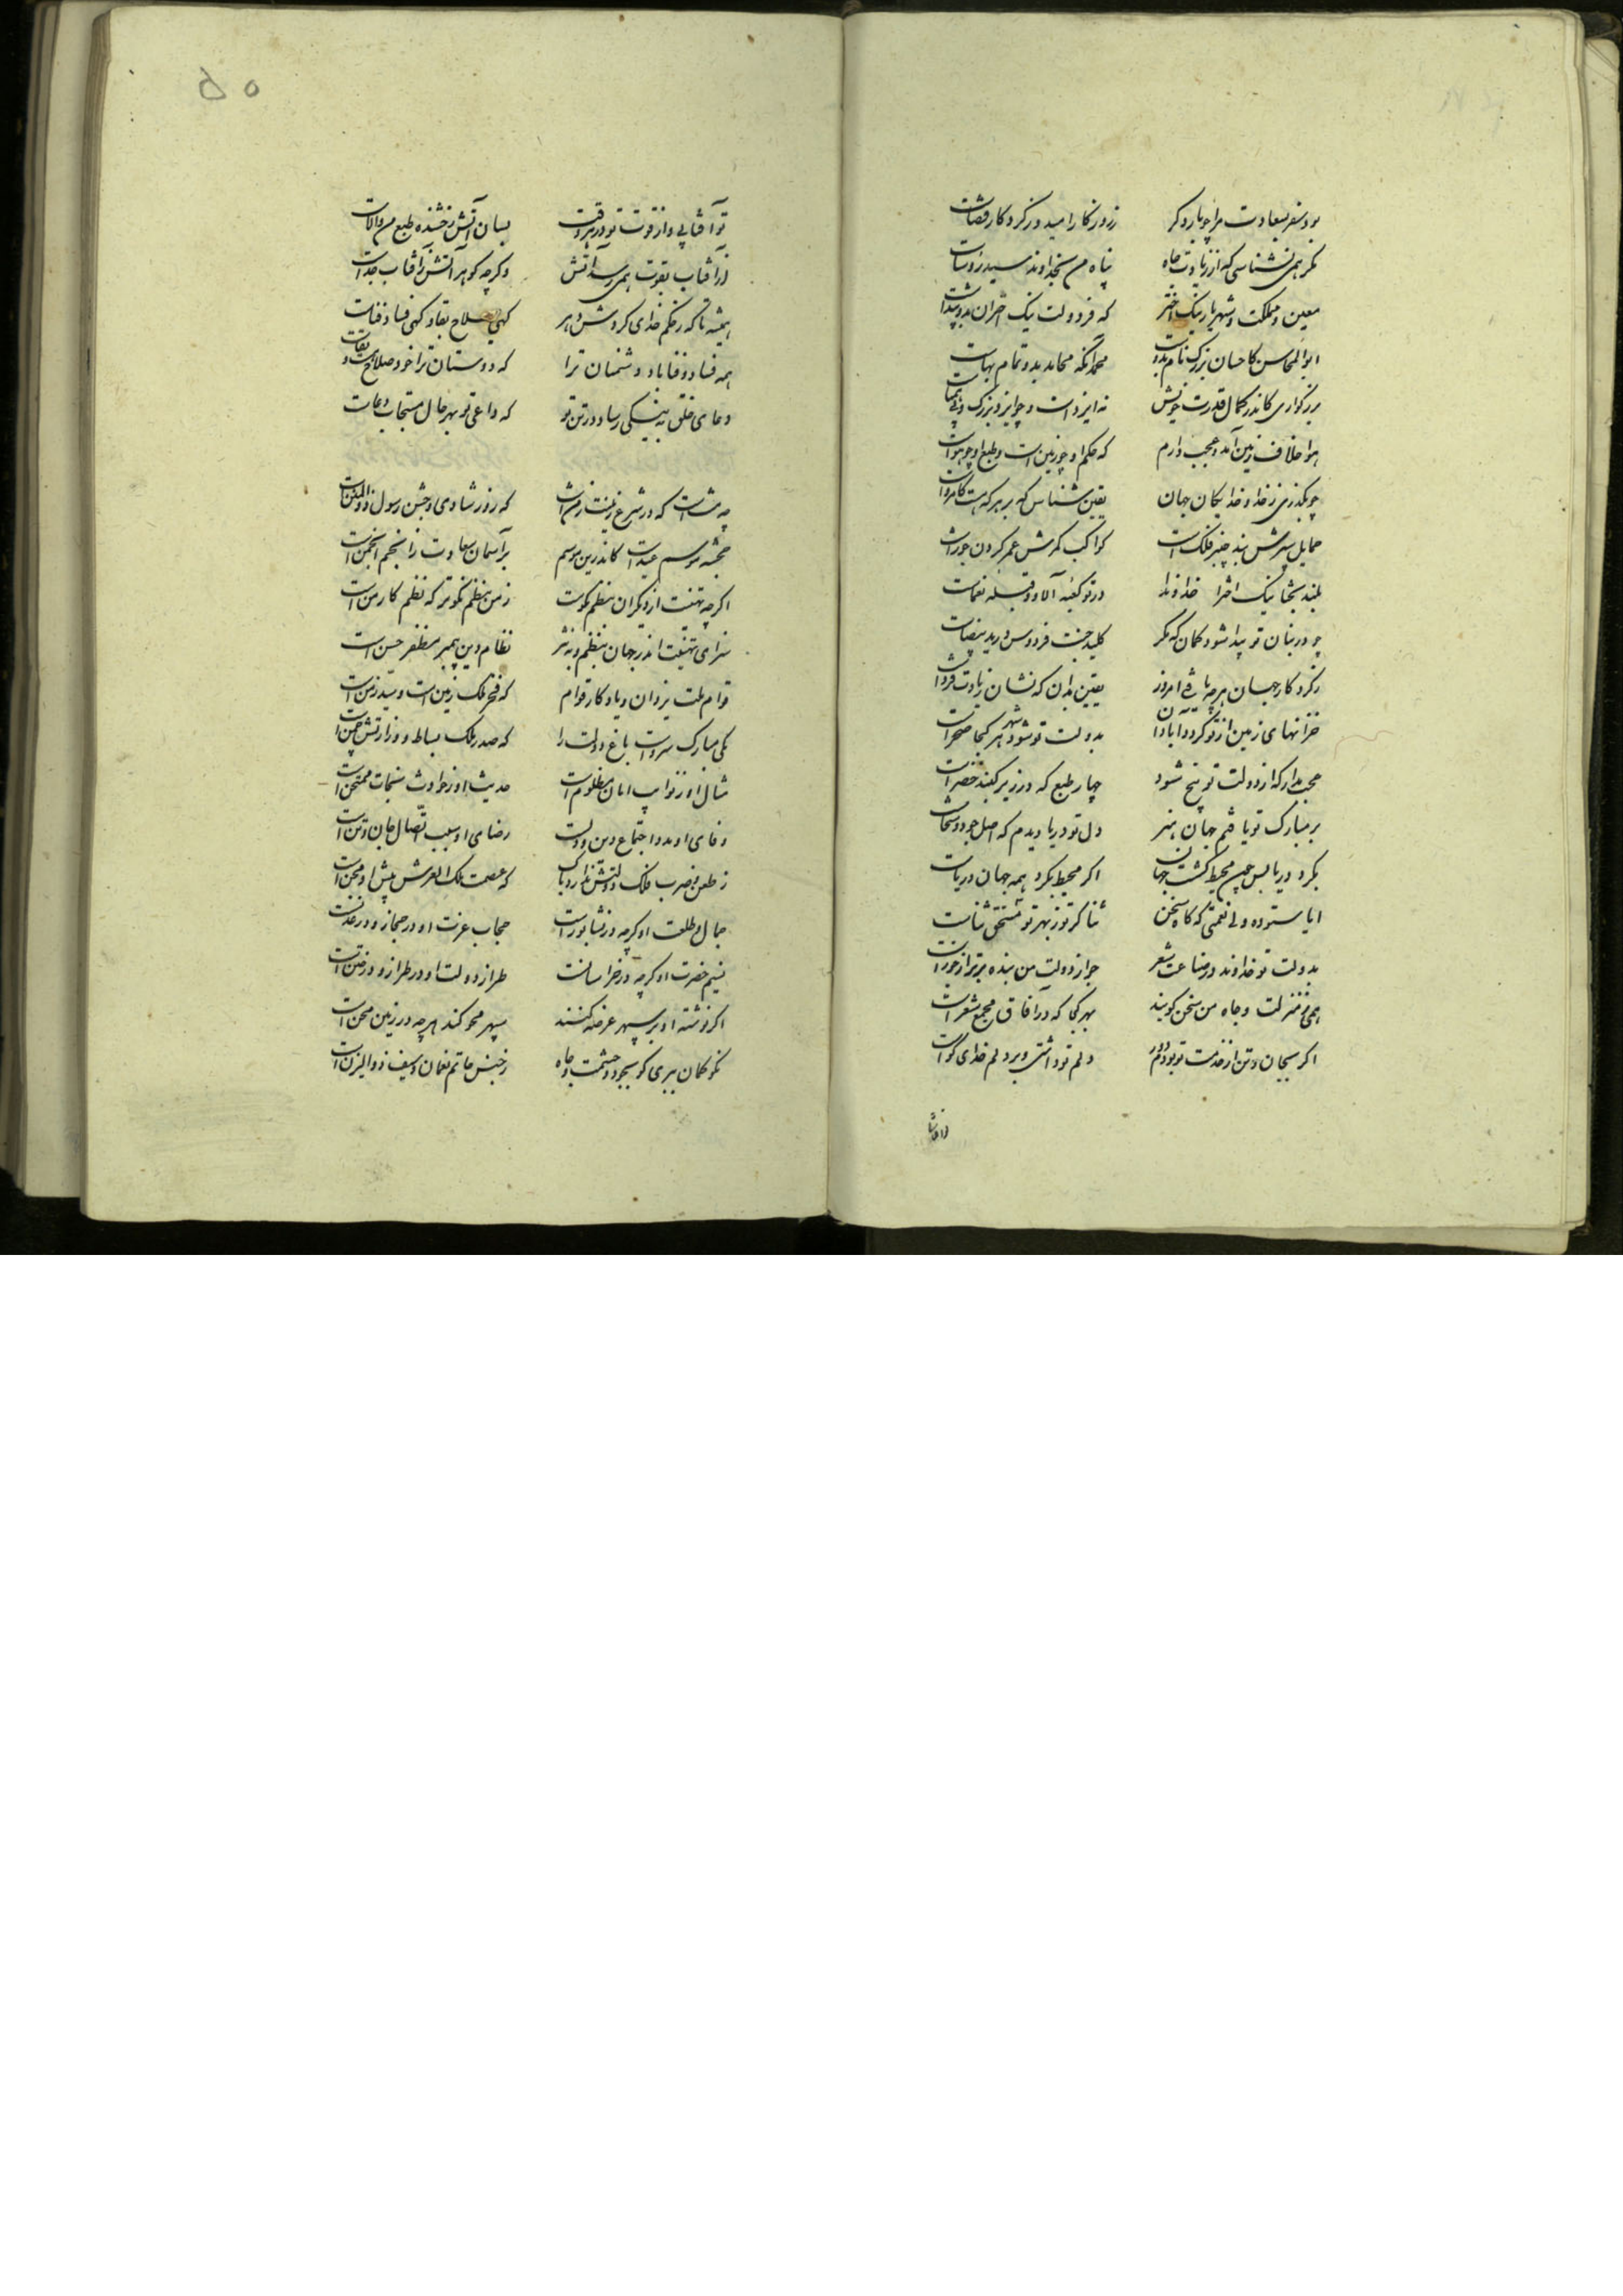 بود سفر بسعادت مرا چو بار دگر زروزگار امید وز کردکار قضاست
مگر همی نشناسی که از زیادت جاه پناه من بخداوند سید رؤساست
معین مملکت و شهریار نیک اختر که فر دولت نیک اختران بدو پیداست
ابوالمحاسن کاحسان بزرگ نام بدوست محمد آنکه محامد بدو تمام بهاست
بزرگواری کاندر کمال قدرت خویش نه ایزد است و چو ایزد بزرگ و بی همتاست
هوا خلاف زمین آمد و عجب دارم که حکم او چو زمین است و طبع او چو هواست
چو بگذری ز خداوند خدایگان جهان یقین شناس که بر هر که هست کامرواست
حمایل سپرش بند چنبر فلک است کواکب کمرش عمر گردون جوزاست
بلند بختا نیک اخترا خداوندا در تو کعبه آلا و قبله نعماست
چو در بنان تو پیدا شود گمان که مگر کلید جنت فردوس در ید بیضاست
ز کردکار جهان هر چه یافتی امروز یقین بدان که نشان زیادت فرداست
خزانهای زمین از تو گردد آبادان بدولت تو شود شهر هر کجا صحراست
عجب مدار که از دولت تو پنج شود چهار طبع که در زیر گنبد خضراست
بر مبارک تو یافتم جهان هنر دل تو دریا دیدم که اصل جود و سخاست
بگرد دریا بس چین محیط گشت جهان اگر محیط بگرد همه جهان دریاست
ایا ستوده ولی نعمتی که گاه سخن ثنا گر تو ز بهر تو مستحق ثناست
بدولت تو خداوند در صناعت شعر چرا ز دولت من بنده برتر از جوزاست
همی ز منزلت و جاه من سخن گویند بهر کجا که در آفاق مجمع شعراست
اگر بجان و تن از خدمت تو بودم دور دلم تو داشتی و بر دلم خدای گواست
تو آفتابی و از قوت تو در هر وقت بسان آتش رخشنده طبع من والاست
ز آفتاب بقوت همی رسد آتش وگرچه گوهر آتش ز آفتاب جداست
همیشه تا که ز حکم خدای گردش دهر گهی صلاح و بقا و گهی فساد و فناست
همه فساد و فنا باد دشمنان ترا که دوستان ترا خود صلاح هست و بقاست
دعای خلق به نیکی رساد در تن تو که داعی تو بهر حال مستجاب دعاست
چه مشاست که در شرع زینت زمن است که روز شادی و جشن رسول ذوالمنن است
خجسته موسم عید است کاندرین موسم بر آسمان سعادت ز انجم انجمن است
اگرچه تهنیت از دیگران بنظم نکوست ز من بنظم نکوتر که نظم کار من است
سزای تهنیت اندر جهان بنظم و به نثر نظام دین پیمبر مظفر حسن است
قوام ملت یزدان و یادگار قوام که فخر ملک زمین است و سید زمن است
یکی مبارک سرو است باغ دولت را که صدر ملک بساط و وزارتش چمن است
مثال او ز نوایب امان مظلوم است حدیث او ز حوادث نجات ممتحن است
وفای او مدد اجتماع دین و دولت رضای او سبب اتصال جان و تن است
ز طعن و ضرب فلک دولتش ندارد باک که عصمت ملک العرش پیش او مجن است
جمال طلعت او گرچه در نشابور است حجاب عزت او در حجاز و در عدنست
نسیم حضرت او گرچه در خراسانست طراز دولت او در طراز و در ختن است
اگر نوشته او بر سپهر عرضه کنند سپهر محو کند هر چه در زمین محن است
نکو گمان ببری کو بجود و حشمت و جاه ز جنس حاتم نعمان و سیف ذوالیزن است